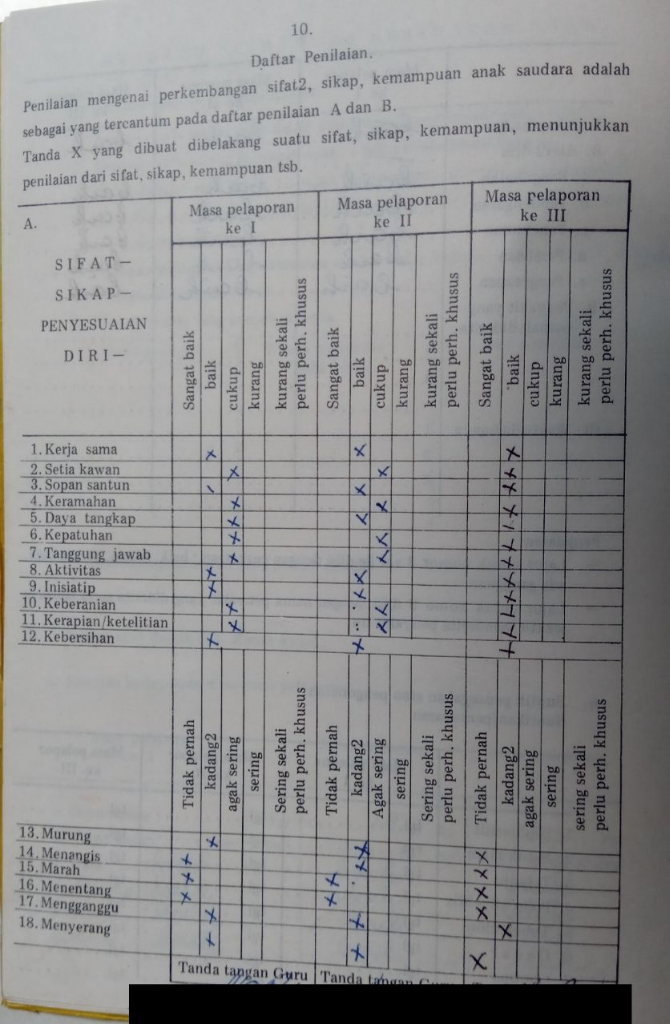 10.
Daftar Penilaian.
Penilaian mengenai perkembangan sifat2, sikap, kemampuan anak saudara adalah
sebagai yang tercantum pada daftar penilaian A dan B.
Tanda X yang dibuat dibelakang suatu sifat, sikap, kemampuan, menunjukkan
penilaian dari sifat, sikap, kemampuan tsb.
A.
SIFAT—
SIKAP—
PENYESUAIAN
DIRI—
Masa pelaporan
ke I
Masa pelaporan
ke II
Masa pelaporan
ke III
Sangat baik
baik
cukup
kurang
kurang sekali
perlu perh. khusus
Sangat baik
baik
cukup
kurang
kurang sekali
perlu perh. khusus
Sangat baik
baik
cukup
kurang
kurang sekali
perlu perh. khusus
1. Kerja sama x x x
2. Setia kawan x x x
3. Sopan santun x x
4. Keramahan x x x
5. Daya tangkap x x
6. Kepatuhan x x x
7. Tanggung jawab x x x
8. Aktivitas x x x
9. Inisiatip x x x
10. Keberanian x x
11. Kerapian/ketelitian x x x
12. Kebersihan x x x
Tidak pernah
kadang2
agak sering
sering
Sering sekali
perlu perh. khusus
Tidak pernah
kadang2
Agak sering
sering
Sering sekali
perlu perh. khusus
Tidak pernah
kadang2
agak sering
sering
sering sekali
perlu perh. khusus
13. Murung x x x
14. Menangis x x x
15. Marah x x x
16. Menentang x x x
17. Mengganggu x x x
18. Menyerang x x x
Tanda tangan Guru
Tanda tangan Guru